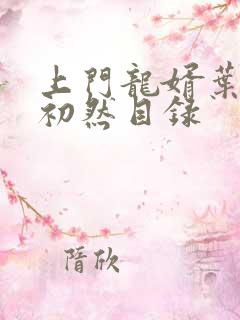 上門龍婿葉
初然目錄
隋欣